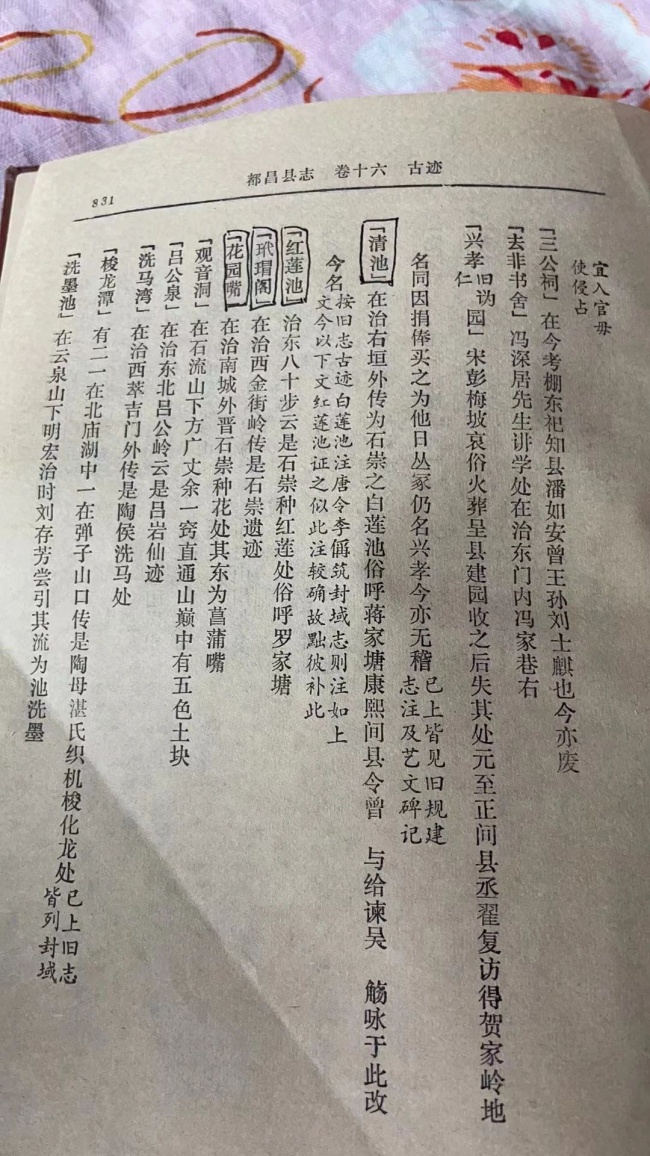 都昌县志 卷十六 古迹
831
宜入官毋
使侵占
「三公祠」在今考棚东祀知县潘如安曾王孙刘士麒也今亦废
「去非书舍」冯深居先生讲学处在治东门内冯家巷右
「兴孝旧讹仁园」宋彭梅坡哀俗火葬呈县建园收之后失其处元至正间县丞翟复访得贺家岭地
名同因捐俸买之为他日丛冢仍名兴孝今亦无稽已上皆见旧规建志注及艺文碑记
「清池」在治右垣外传为石崇之白莲池俗呼蒋家塘康熙间县令曾 与给谏吴 觞咏于此改
今名按旧志古迹白莲池注唐令李偁筑封域志则注如上文今以下文红莲池证之似此注较确故黜彼补此
「红莲池」治东八十步云是石崇种红莲处俗呼罗家塘
「玳瑁阁」在治西金街岭传是石崇遗迹
「花园嘴」在治南城外晋石崇种花处其东为菖蒲嘴
「观音洞」在石流山下方广丈余一窍直通山巅中有五色土块
「吕公泉」在治东北吕公岭云是吕岩仙迹
「洗马湾」在治西萃吉门外传是陶侯洗马处
「梭龙潭」有二一在北庙湖中一在弹子山口传是陶母湛氏织机梭化龙处已上旧志皆列封域
「洗墨池」在云泉山下明宏治时刘存芳尝引其流为池洗墨